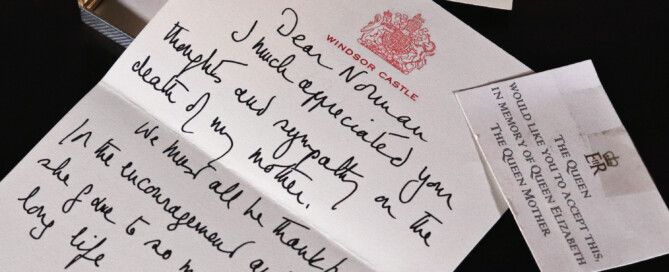 WINDSOR CASTLE
Dear Norman
I much appreciated your
thoughts and sympathy on the
death of my mother.
We must all be thankf
for the encouragement a
she gave to so m
long life
EIIR
THE QUEEN
WOULD LIKE YOU TO ACCEPT THIS,
IN MEMORY OF QUEEN ELIZABETH
THE QUEEN MOTHER